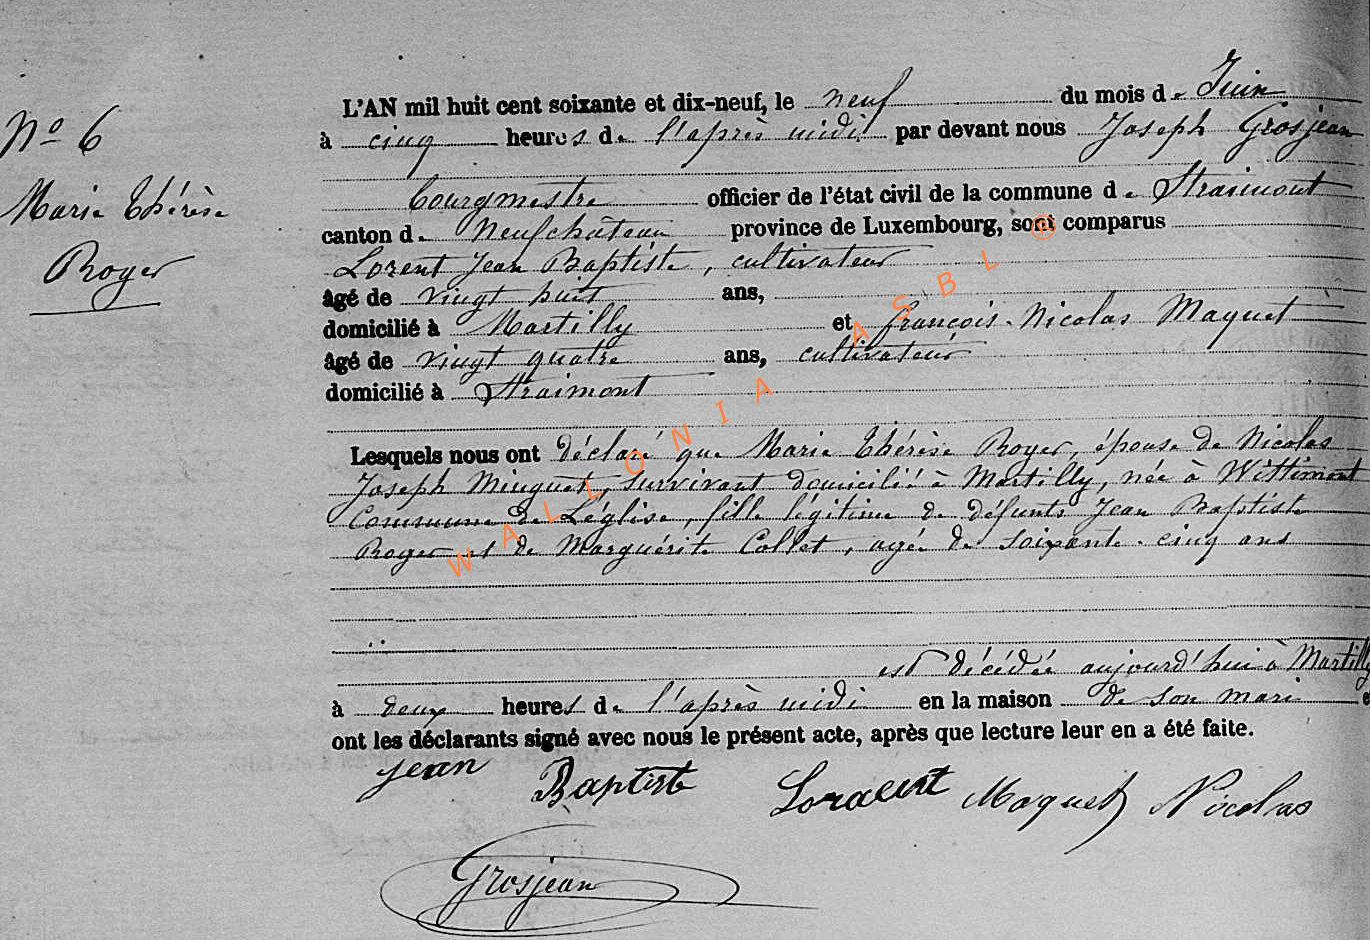 N° 6
Marie Thérèse
Roger
L'AN mil huit cent soixante et dix-neuf, le neuf du mois de Juin
à cinq heures de l'après midi par devant nous Joseph Grosjean
bourgmestre officier de l'état civil de la commune de Straimont
canton de Neufchâteau province de Luxembourg, sont comparus
Lorent Jean Baptiste, cultivateur
âgé de vingt huit ans,
domicilié à Martilly et François Nicolas Maquet
âgé de vingt quatre ans, cultivateur
domicilié à Straimont
Lesquels nous ont déclaré que Marie Thérèse Roger, épouse de Nicolas
Joseph Minguet, survivant domicilié à Martilly, née à Wittimont
Commune de Léglise, fille légitime de défunts Jean Baptiste
Roger et de Marguérite Collet, agée de soixante-cinq ans
est décédée aujourd'hui à Martilly
à deux heures de l'après midi en la maison de son mari e
ont les déclarants signé avec nous le présent acte, après que lecture leur en a été faite.
Jean Baptiste Loraent Maquet Nicolas
Grosjean
WALLONIA ASBL ®